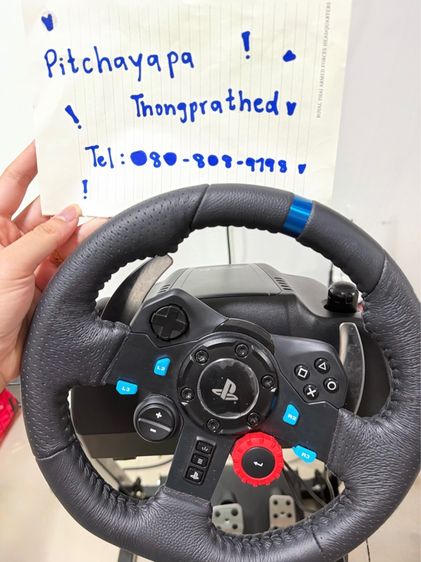 ROYAL THAI ARMED FORCES HEADQUARTERS
Pitchayapa !
! Thongprathed
Tel : 080-808-9798
!
L2
L3
R2
R3
+
-